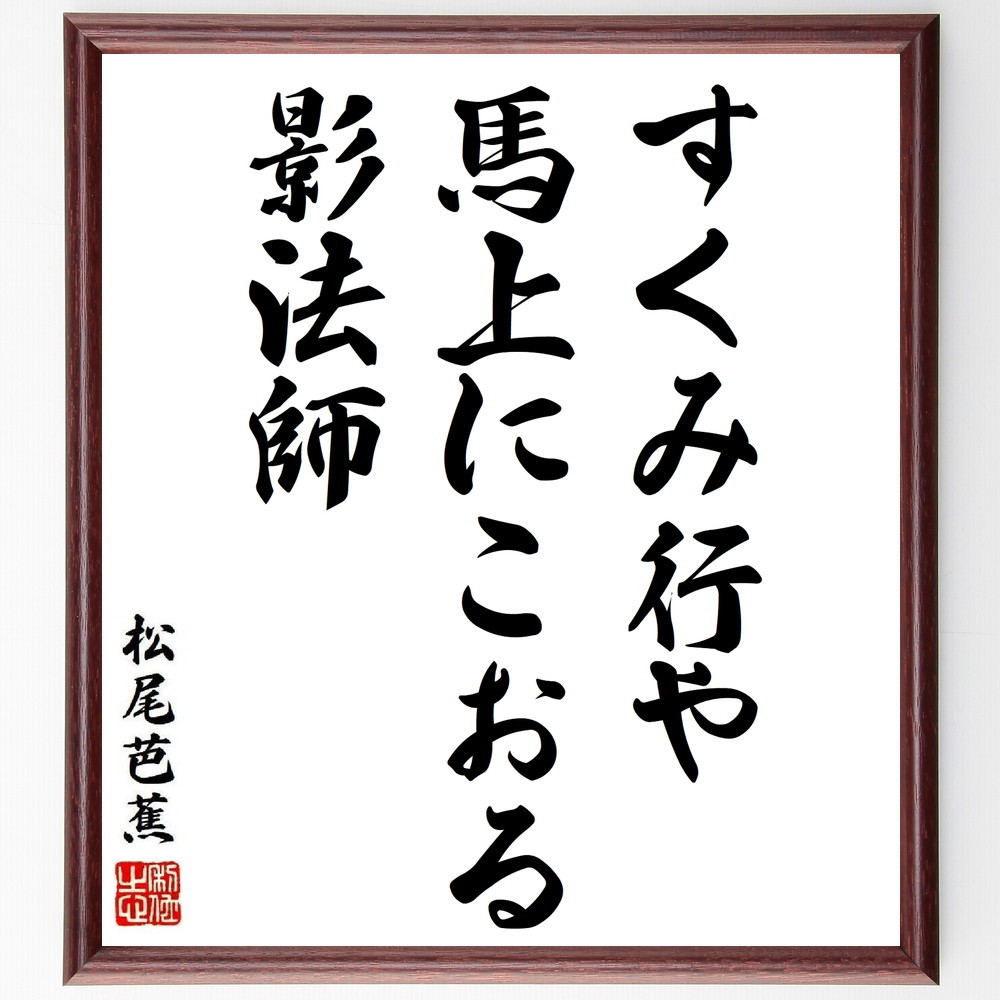 すくみ行や
馬上にこおる
影法師
松尾芭蕉